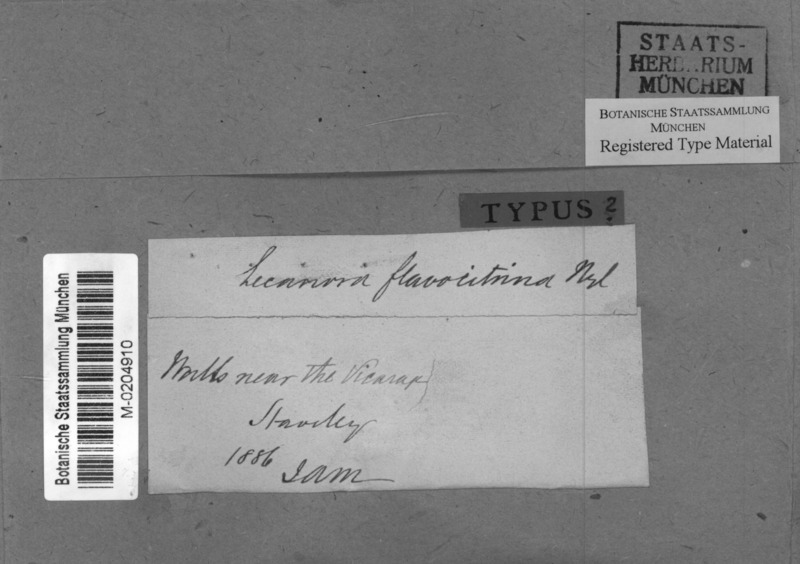 STAATS-
HERB..RIUM
MÜNCHEN
BOTANISCHE STAATSSAMMLUNG
MÜNCHEN
Registered Type Material
TYPUS ?
Lecanora flavocitrina Nyl
Walls near the Vicarage
Staveley
1886 JAM
Botanische Staatssammlung München
M-0204910